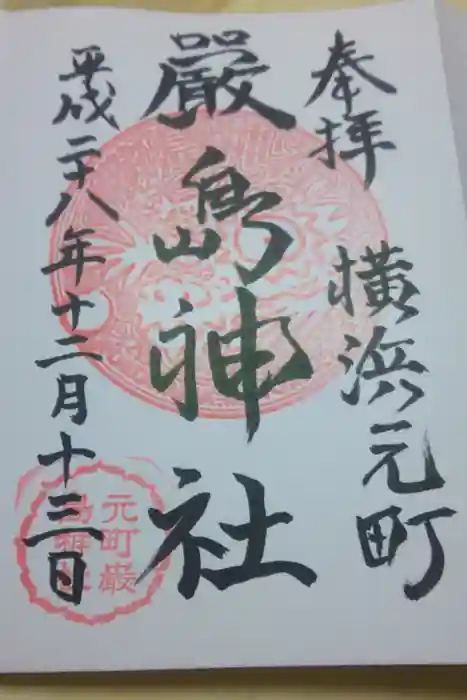 奉拝 横浜元町
厳島神社
平成二十八年十二月十三日
元町厳
島神社